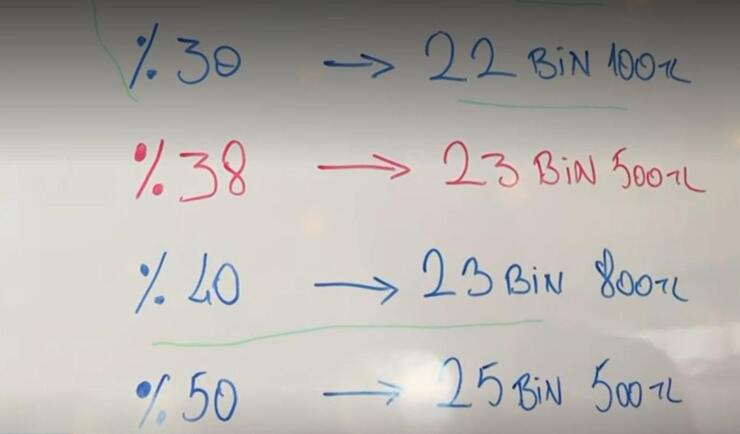 %30 → 22 BİN 100 TL
%38 → 23 BİN 500 TL
%40 → 23 BİN 800 TL
%50 → 25 BİN 500 TL